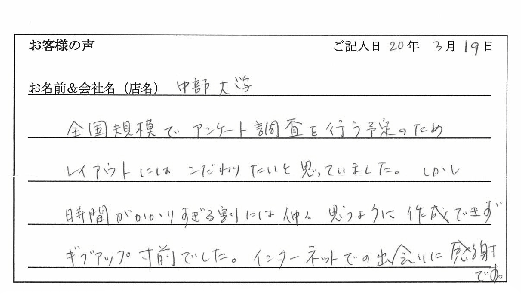 お客様の声 ご記入日 20年 3月 19日
お名前&会社名（店名） 中部大学
全国規模で アンケート調査を行う予定のため
レイアウトには こだわりたいと思っていました。 しかし
時間がかかりすぎる割りには 仲々 思うように 作成できず
ギブアップ寸前でした。インターネットでの出会いに感謝
です。